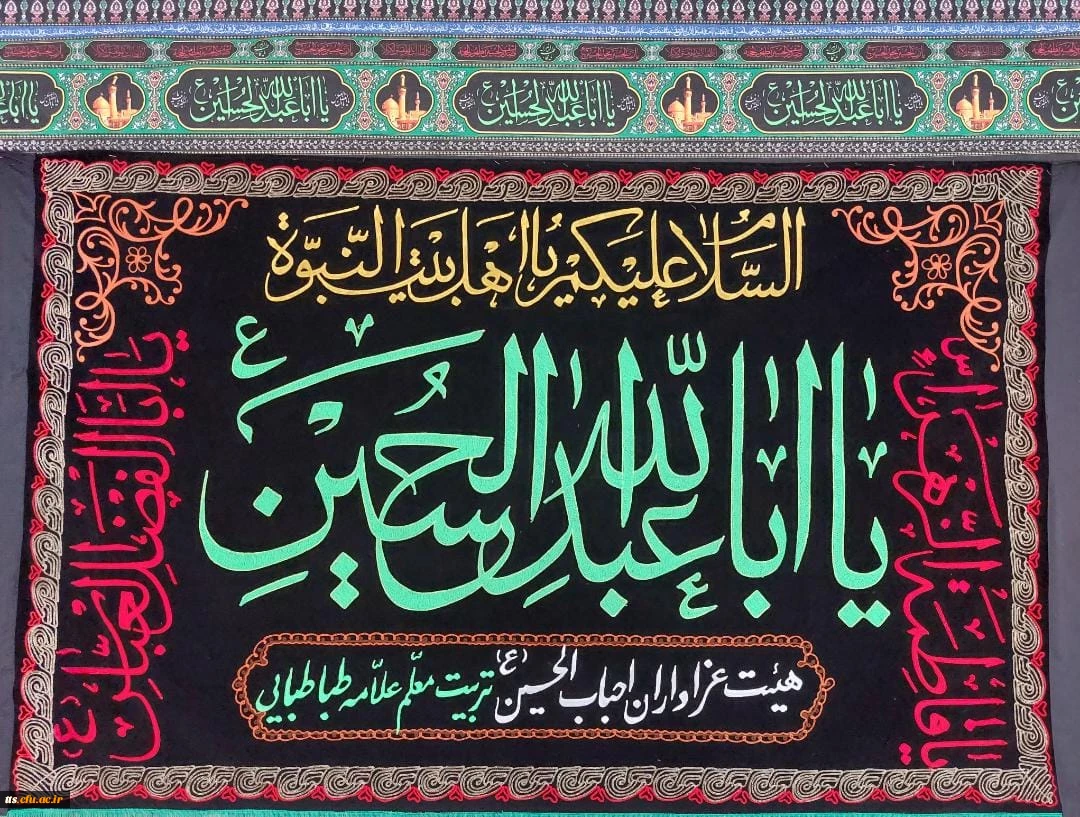 یا اباعبدالله الحسین ع
یا اباعبدالله الحسین ع
یا اباعبدالله الحسین ع
السلام علیکم یا اهل بیت النبوة
یا اباعبدالله الحسین ع
یا فاطمة الزهراء س
یا اباالفضل العباس ع
هیئت عزاداران احباب الحسین (ع) تربیت معلم علامه طباطبایی
as.cfu.ac.ir